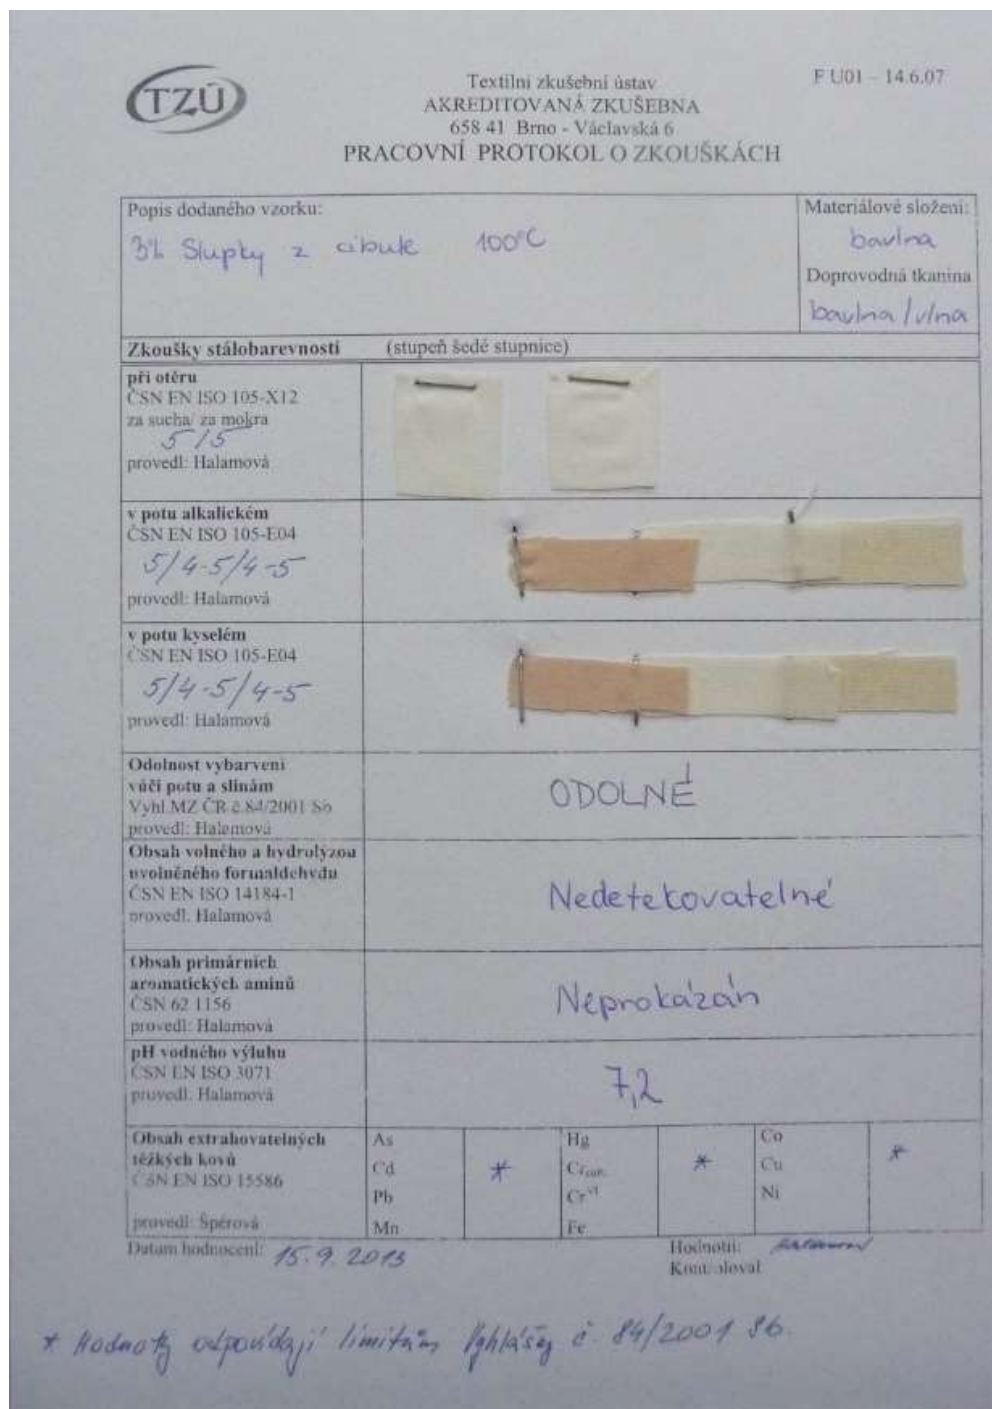 TZÚ
Textilní zkušební ústav
F U01 – 14.6.07
AKREDITOVANÁ ZKUŠEBNA
658 41 Brno - Václavská 6
PRACOVNÍ PROTOKOL O ZKOUŠKÁCH
Popis dodaného vzorku:
3% Slupky z cibule 100°C
Materiálové složení:
bavlna
Doprovodná tkanina
bavlna/vlna
Zkoušky stálobarevnosti (stupeň šedé stupnice)
při otěru
ČSN EN ISO 105-X12
za sucha/ za mokra
5/5
provedl: Halamová
v potu alkalickém
ČSN EN ISO 105-E04
5/4-5/4-5
provedl: Halamová
v potu kyselém
ČSN EN ISO 105-E04
5/4-5/4-5
provedl: Halamová
Odolnost vybarvení
vůči potu a slinám
Vyhl.MZ ČR č.84/2001 Sb
provedl: Halamová
ODOLNÉ
Obsah volného a hydrolýzou
uvolněného formaldehydu
ČSN EN ISO 14184-1
provedl: Halamová
Nedetekovatelné
Obsah primárních
aromatických aminů
ČSN 62 1156
provedl: Halamová
Neprokázán
pH vodného výluhu
ČSN EN ISO 3071
provedl: Halamová
7,2
Obsah extrahovatelných
těžkých kovů
ČSN EN ISO 15586
provedl: Špérová
As
Cd
Pb
Mn
*
Hg
Cr
Cr VI
Fe
*
Co
Cu
Ni
*
Datum hodnocení: 15.9.2013
Hodnotil:
Kontroloval
* Hodnoty odpovídají limitům Vyhlášky č. 84/2001 Sb.